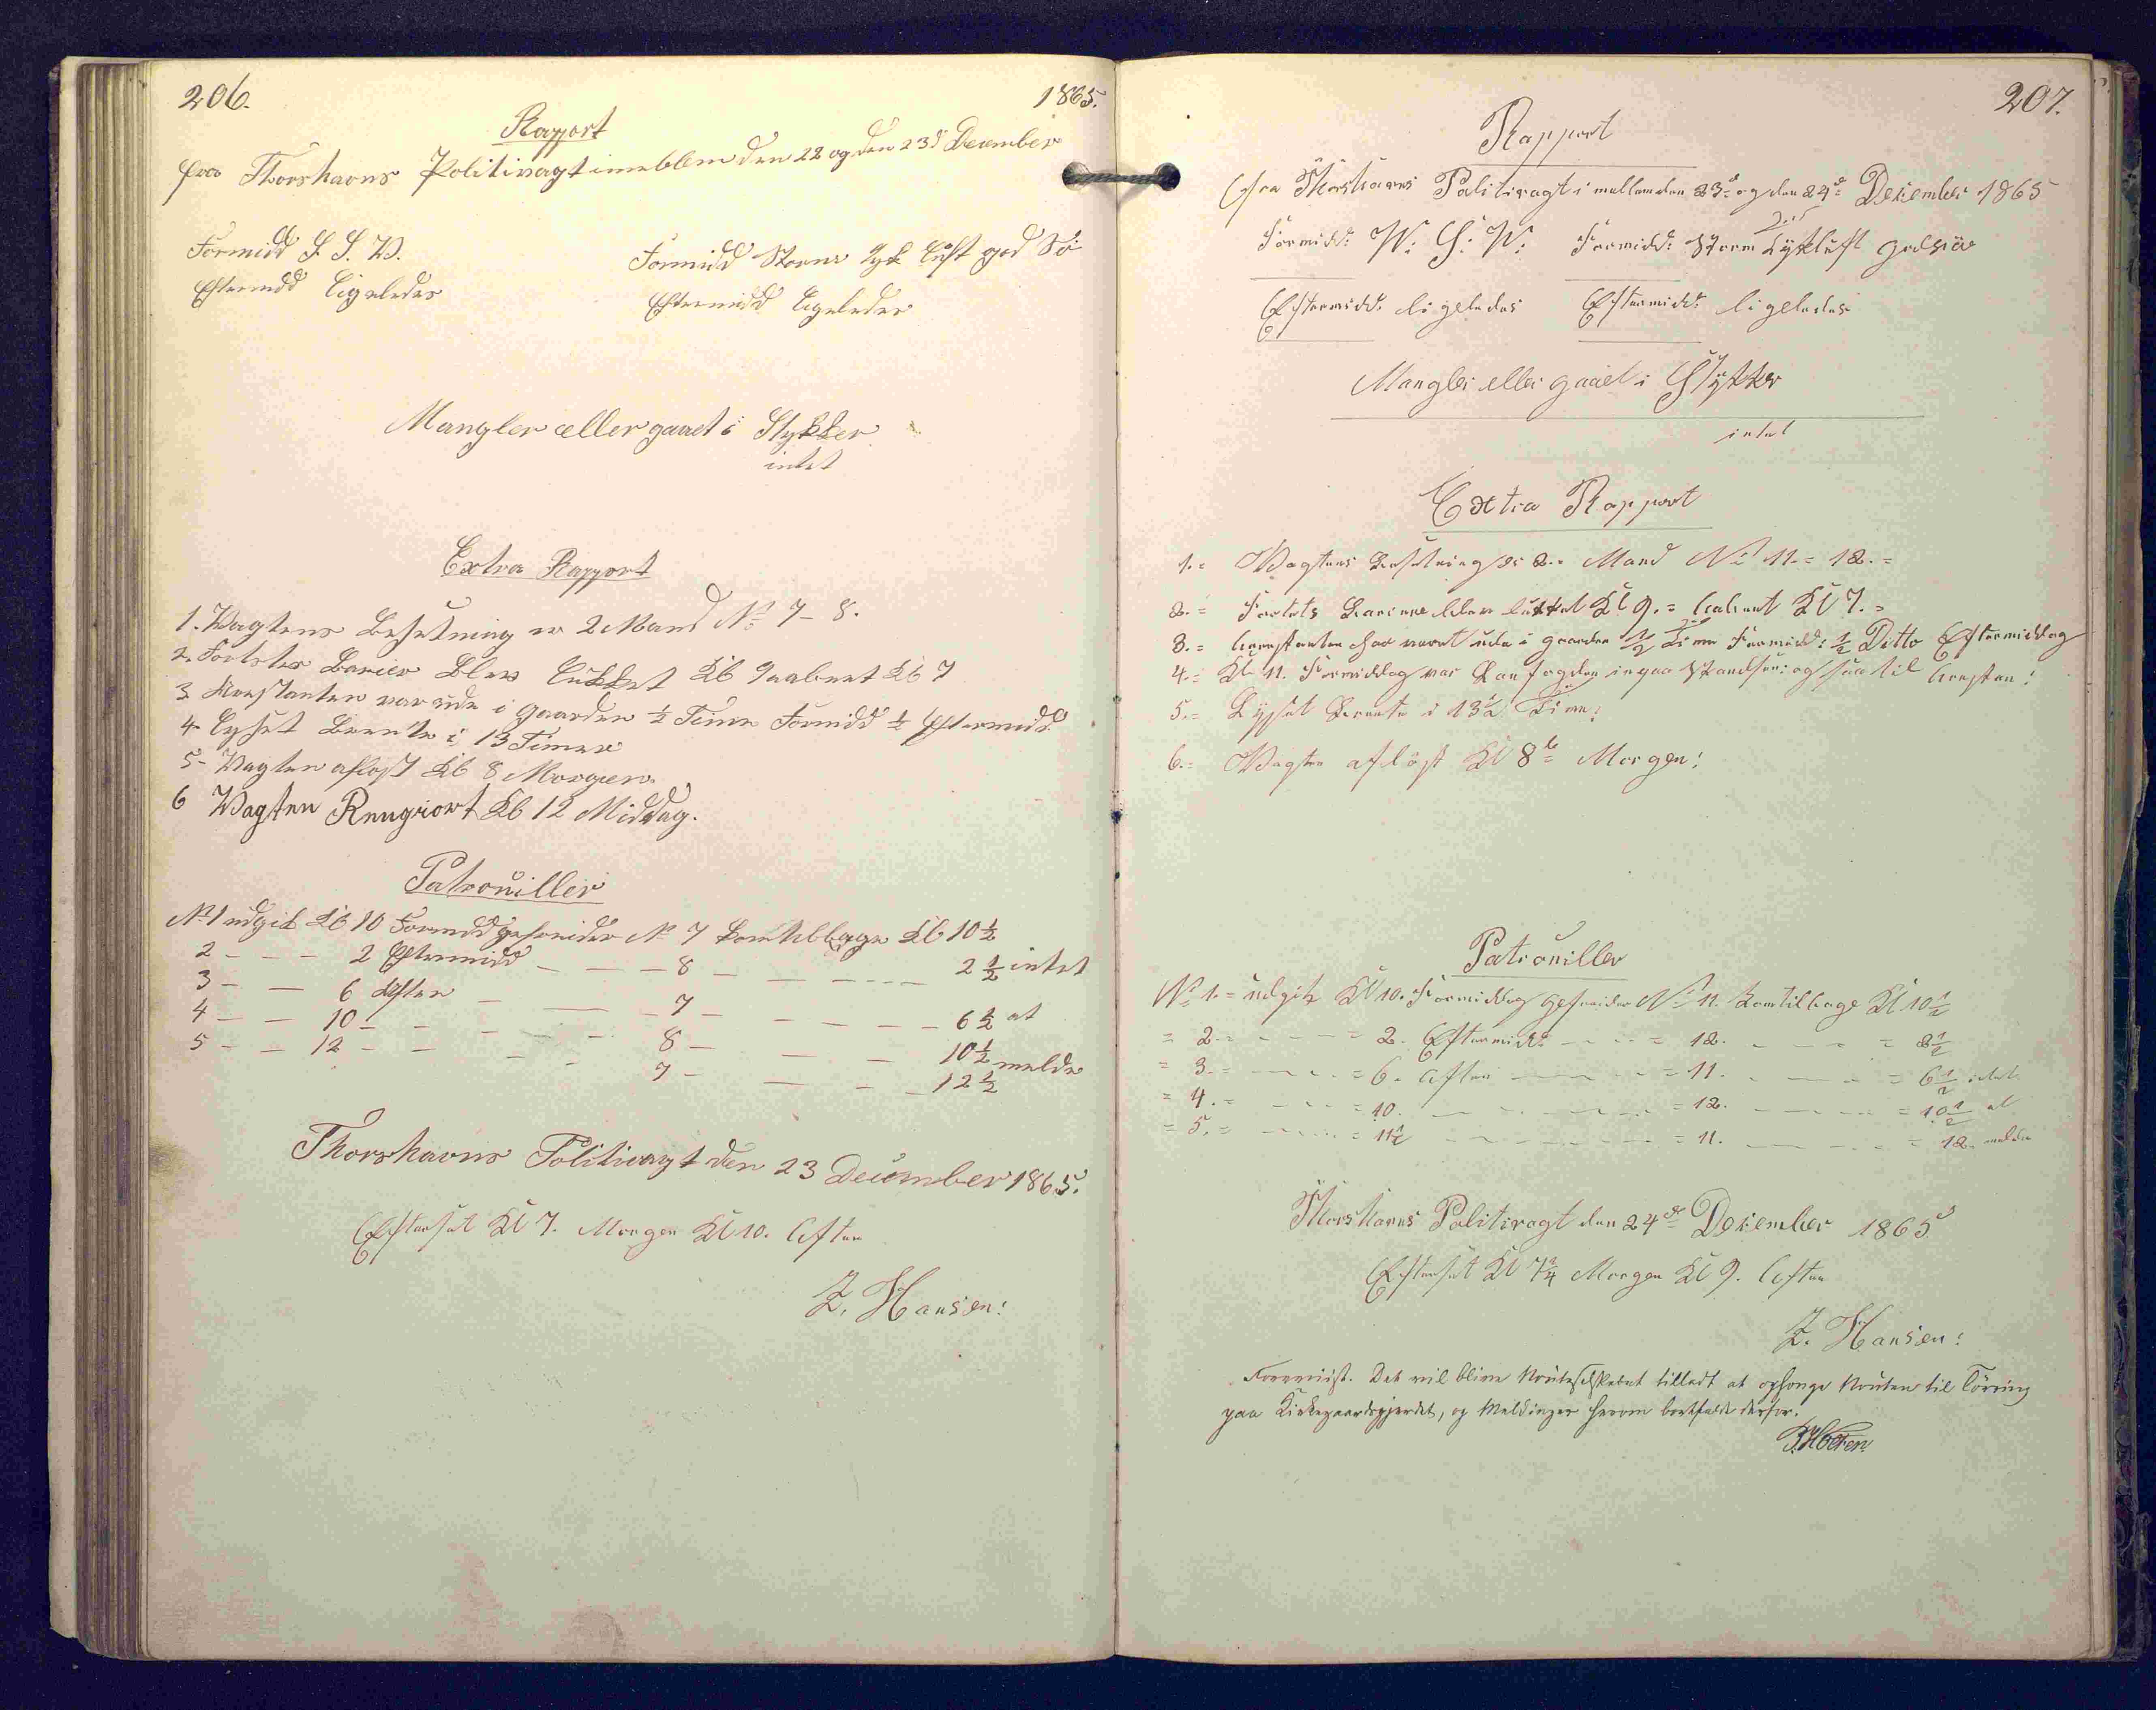 206.
1865.
Rapport
fra Thorshavns Politivagt imellem den 22 og den 23d December
Formidd S. S. V.
Formidd Storm tyk Luft god Sö
Eftermidd Ligeledes
Eftermidd Ligeledes
Mangler eller gaaet i Stykker
intet
Extra Rapport
1. Vagtens Besetning er 2 Mand No 7 - 8.
2. Fortets Barier Blev Lukket Kl 9 aabnet Kl 7
3 Arestanten var ude i gaarden ½ Time Formidd ½ Eftermidd
4 Lyset Brente i 13 Timer
5 - Vagten aflöst Kl 8 Morgen.
6 Vagten Rengiort Kl 12 Middag.
Patrouiller
No 1 udgik Kl 10 Formidd gefreider No 7 komtilbage Kl 10 ½
2 - - - 2 Eftermidd - - - 8 - - - - - 2 ½ intet
3 - - 6 Aften - - - 7 - - - - - 6 ½ at
4 - - 10 - - - - - 8 - - - 10 ½ melde
5 - - 12 - - - - 7 - - - - 12 ½
Thorshavns Politivagt den 23 December 1865.
Efterset Kl 7. Morgen Kl 10. Aften
Z. Hansen:
207.
Rapport
Fra Thorshavns Politivagt i mellem den 23de og den 24de Desember 1865
Formidd: V: S: V: Formidd: Storm Tykluft god siö
Eftermidd: ligeledes Eftermidd: ligeledes
Mangler eller gaaet i Stykker
intet
Extra Rapport
1. = Vagtens Besetning er 2. Mand No 11. = 12. =
2. = Fortets Bariere blev lukket Kl 9. = aabnet Kl 7. =
3. = Arrestanten har været ude i gaarden ½ Time Formidd: ½ Ditto Eftermiddag
4. = Kl 11. Formiddag var Lanfogden inpaa Standsen: og saa til Aresten:
5. = Lyset Brente i 13½ Time:
6. = Vagten aflöst Kl 8te Morgen:
Patrouiller
No 1. = udgik Kl 10. Formiddag gefreider No 11. komtilbage Kl 10½
= 2. - - - = 2. Eftermidd: - - = 12. - - - = 2½
= 3. = - - - = 6. Aften - - - = 11. - - - = 6½ intet
= 4. = - - - = 10. - - - = 12. - - - = 10½ at
= 5. = - - - = 11½ - - - = 11. - - - = 12. melde
Thorshavns Politivagt den 24de Desember 1865
Efterset Kl 7¼ Morgen Kl 9. Aften
Z. Hansen:
Foreviist. Det vil blive tilladt at ophænge til Törring
paa Kirkegaardsgjerdet, og Meldinger herom bortfalde derfor.